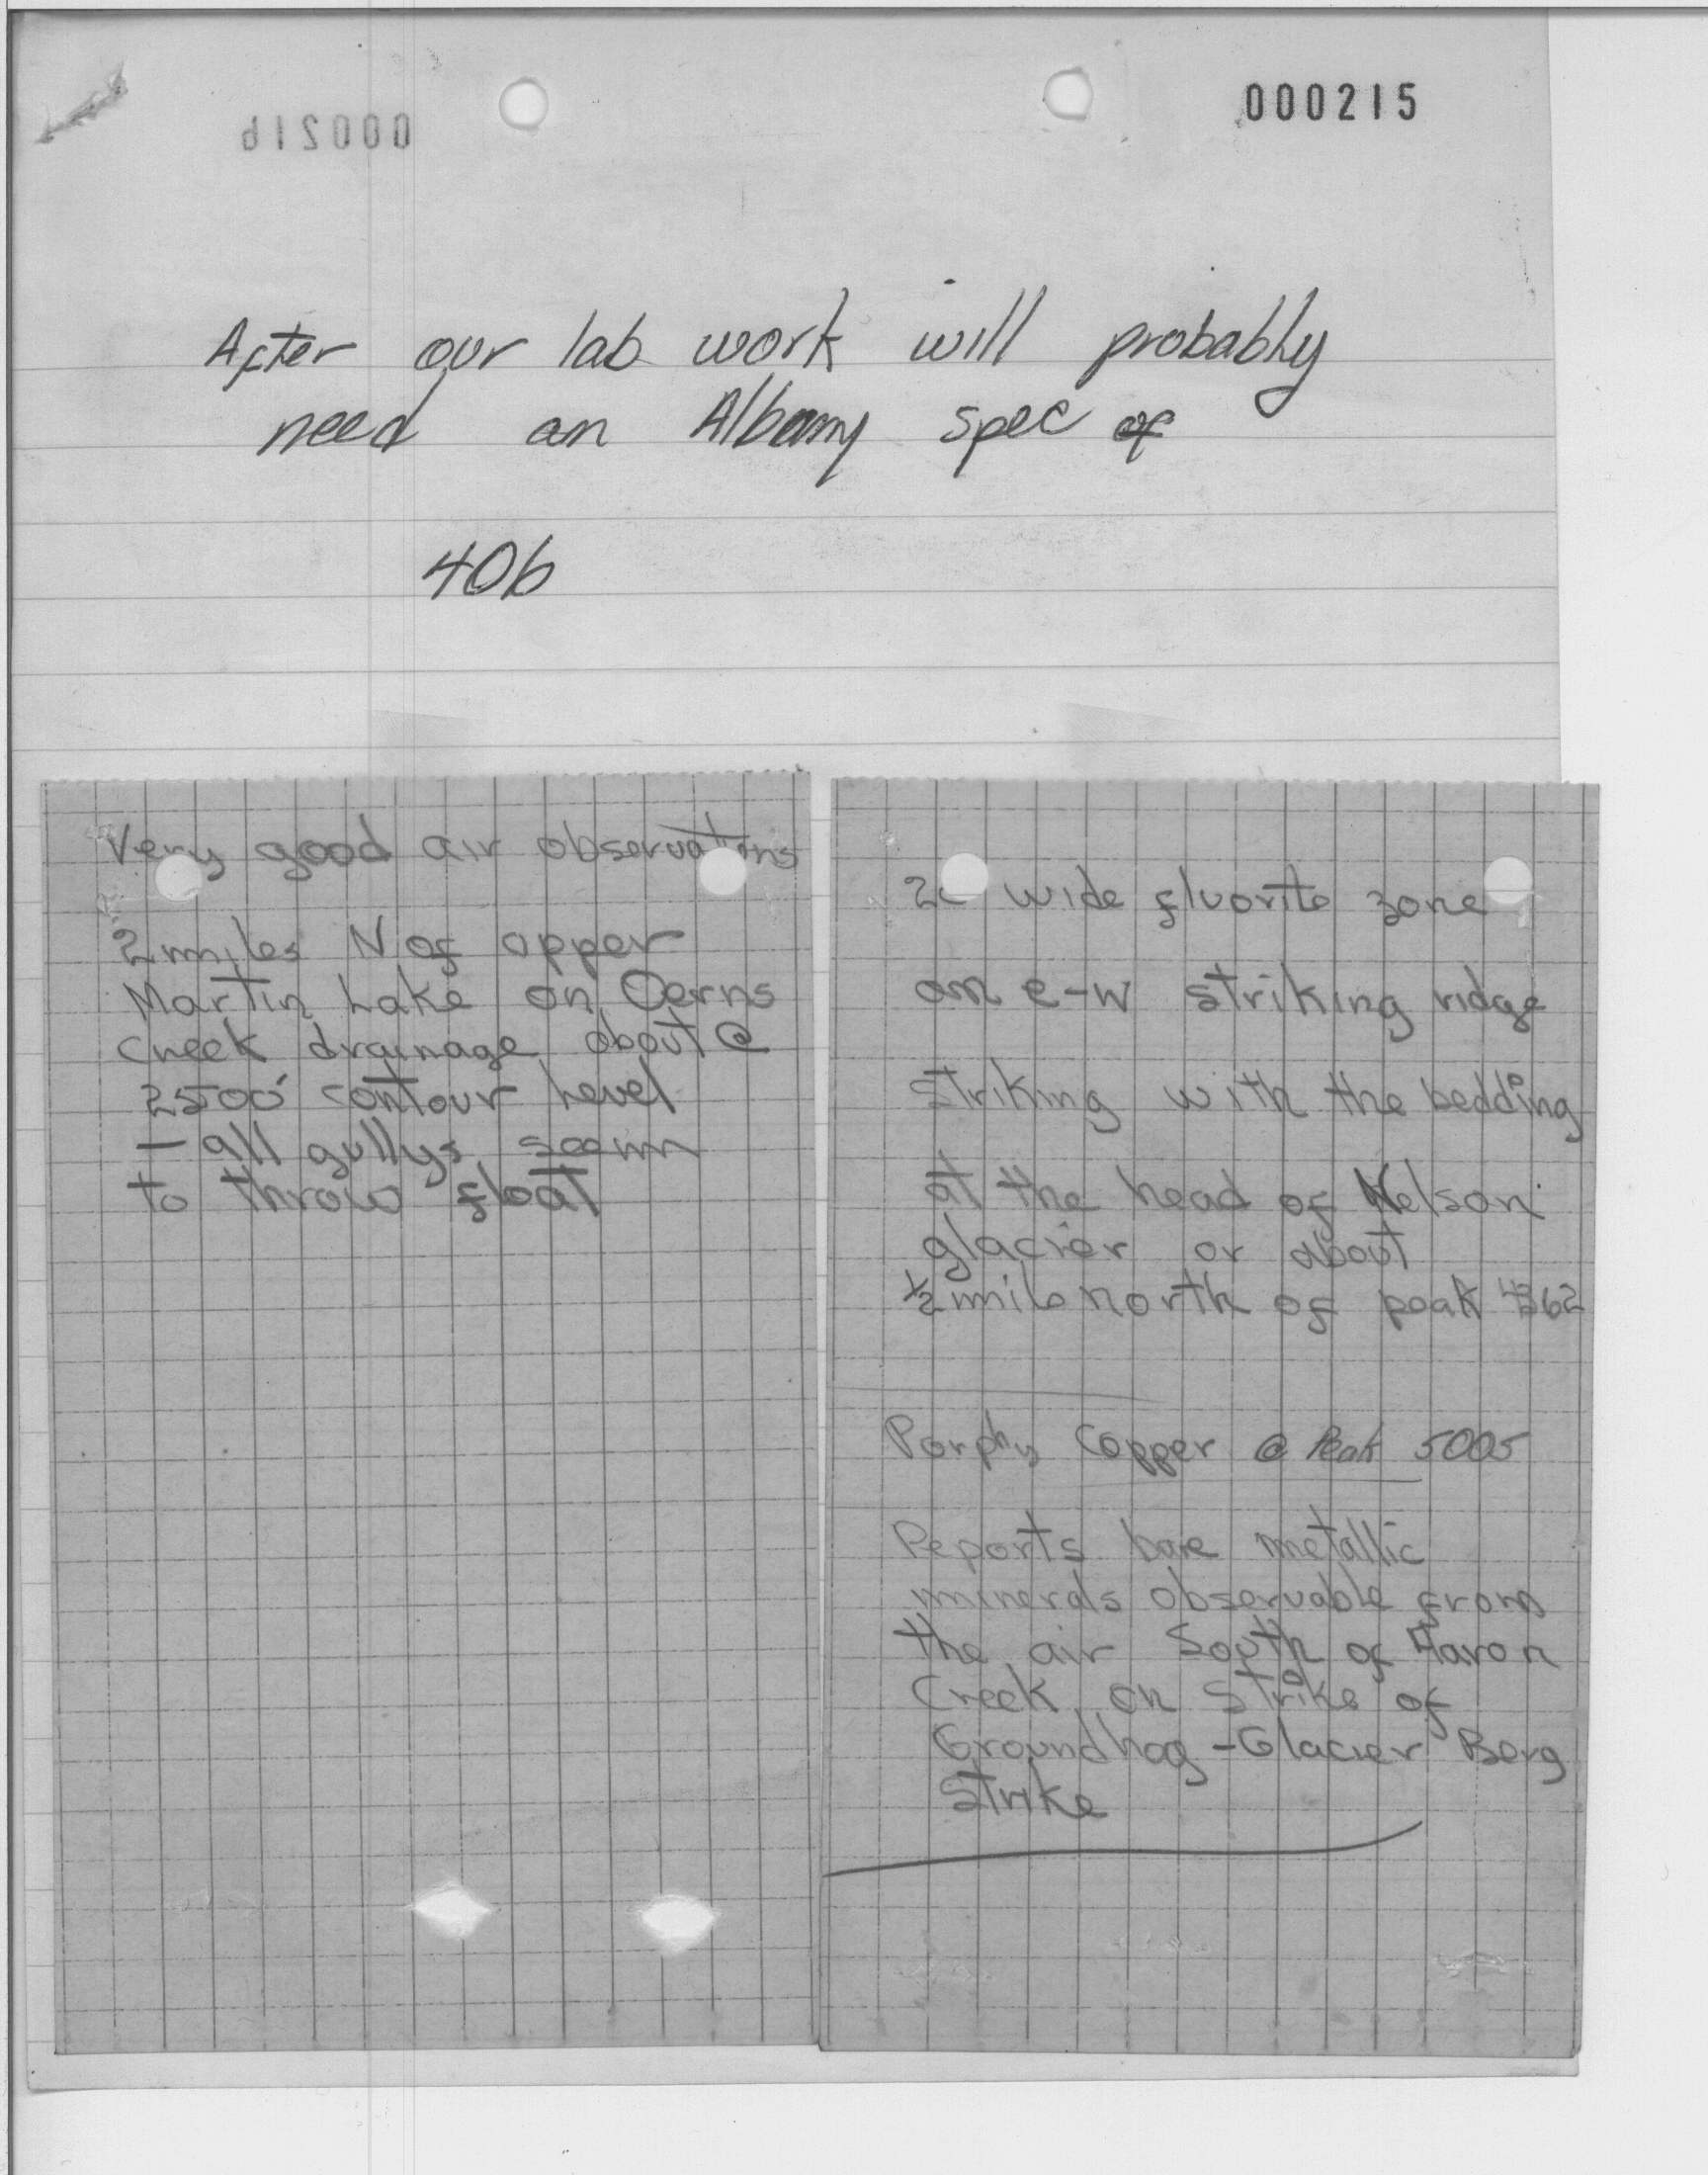 000215
000216
After our lab work will probably
need an Albany spec of
40b
Very good air observations
2 miles N of upper
Martin Lake on Oerns
Creek drainage about @
2500' contour level
- all gullys seem
to throw float
wide fluorite zone
on e-w striking ridge
striking with the bedding
at the head of Nelson
glacier or about
½ mile north of peak 4362
Porphy Copper @ Peak 5005
Reports have metallic
minerals observable from
the air South of Aaron
Creek on strike of
Groundhog - Glacier Berg
Strike